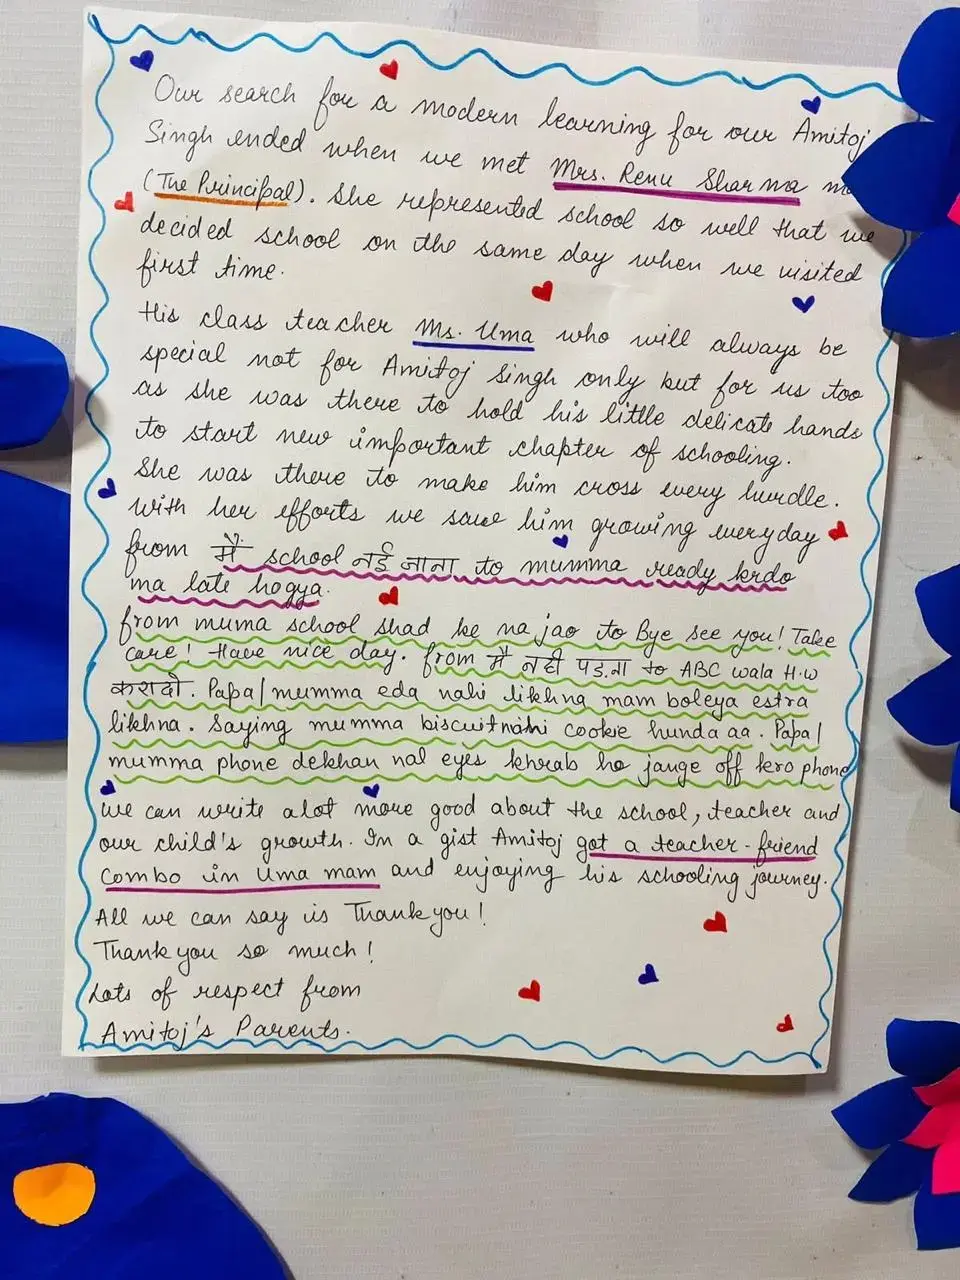 Our search for a modern learning for our Amitoj
Singh ended when we met Mrs. Renu Sharma
(The Principal). She represented school so well that we
decided school on the same day when we visited
first time.
His class teacher Ms. Uma who will always be
special not for Amitoj Singh only but for us too
as she was there to hold his little delicate hands
to start new important chapter of schooling.
She was there to make him cross every hurdle.
With her efforts we saw him growing everyday
from मैं school नई जाना to mumma ready krdo
ma late hogya.
from muma school shad ke na jao to Bye see you! Take
care! Have nice day. from मै नही पड़ना to ABC wala H.w
करादो. Papa/mumma eda nahi likhna mam boleya estra
likhna. Saying mumma biscuit nahi cookie hunda aa. Papa/
mumma phone dekhan nal eyes khrab ho jange off kro phone
we can write alot more good about the school, teacher and
our child's growth. In a gist Amitoj got a teacher-friend
combo in Uma mam and enjoying his schooling journey.
All we can say is Thankyou!
Thank you so much!
Lots of respect from
Amitoj's Parents.